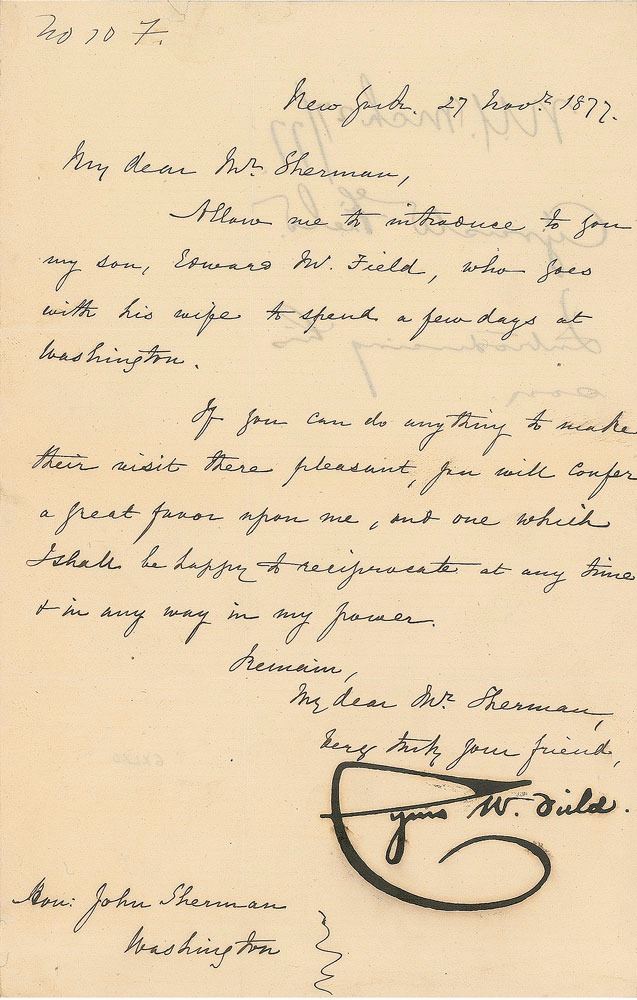 No 10 F.
New York. 27 Novr. 1877.
My dear Mr. Sherman,
Allow me to introduce to you
my son, Edward M. Field, who goes
with his wife to spend a few days at
Washington.
If you can do anything to make
their visit there pleasant, you will confer
a great favor upon me, and one which
I shall be happy to reciprocate at any time
& in any way in my power.
I remain,
My dear Mr. Sherman,
Very truly your friend,
Cyrus W. Field.
Hon: John Sherman
Washington